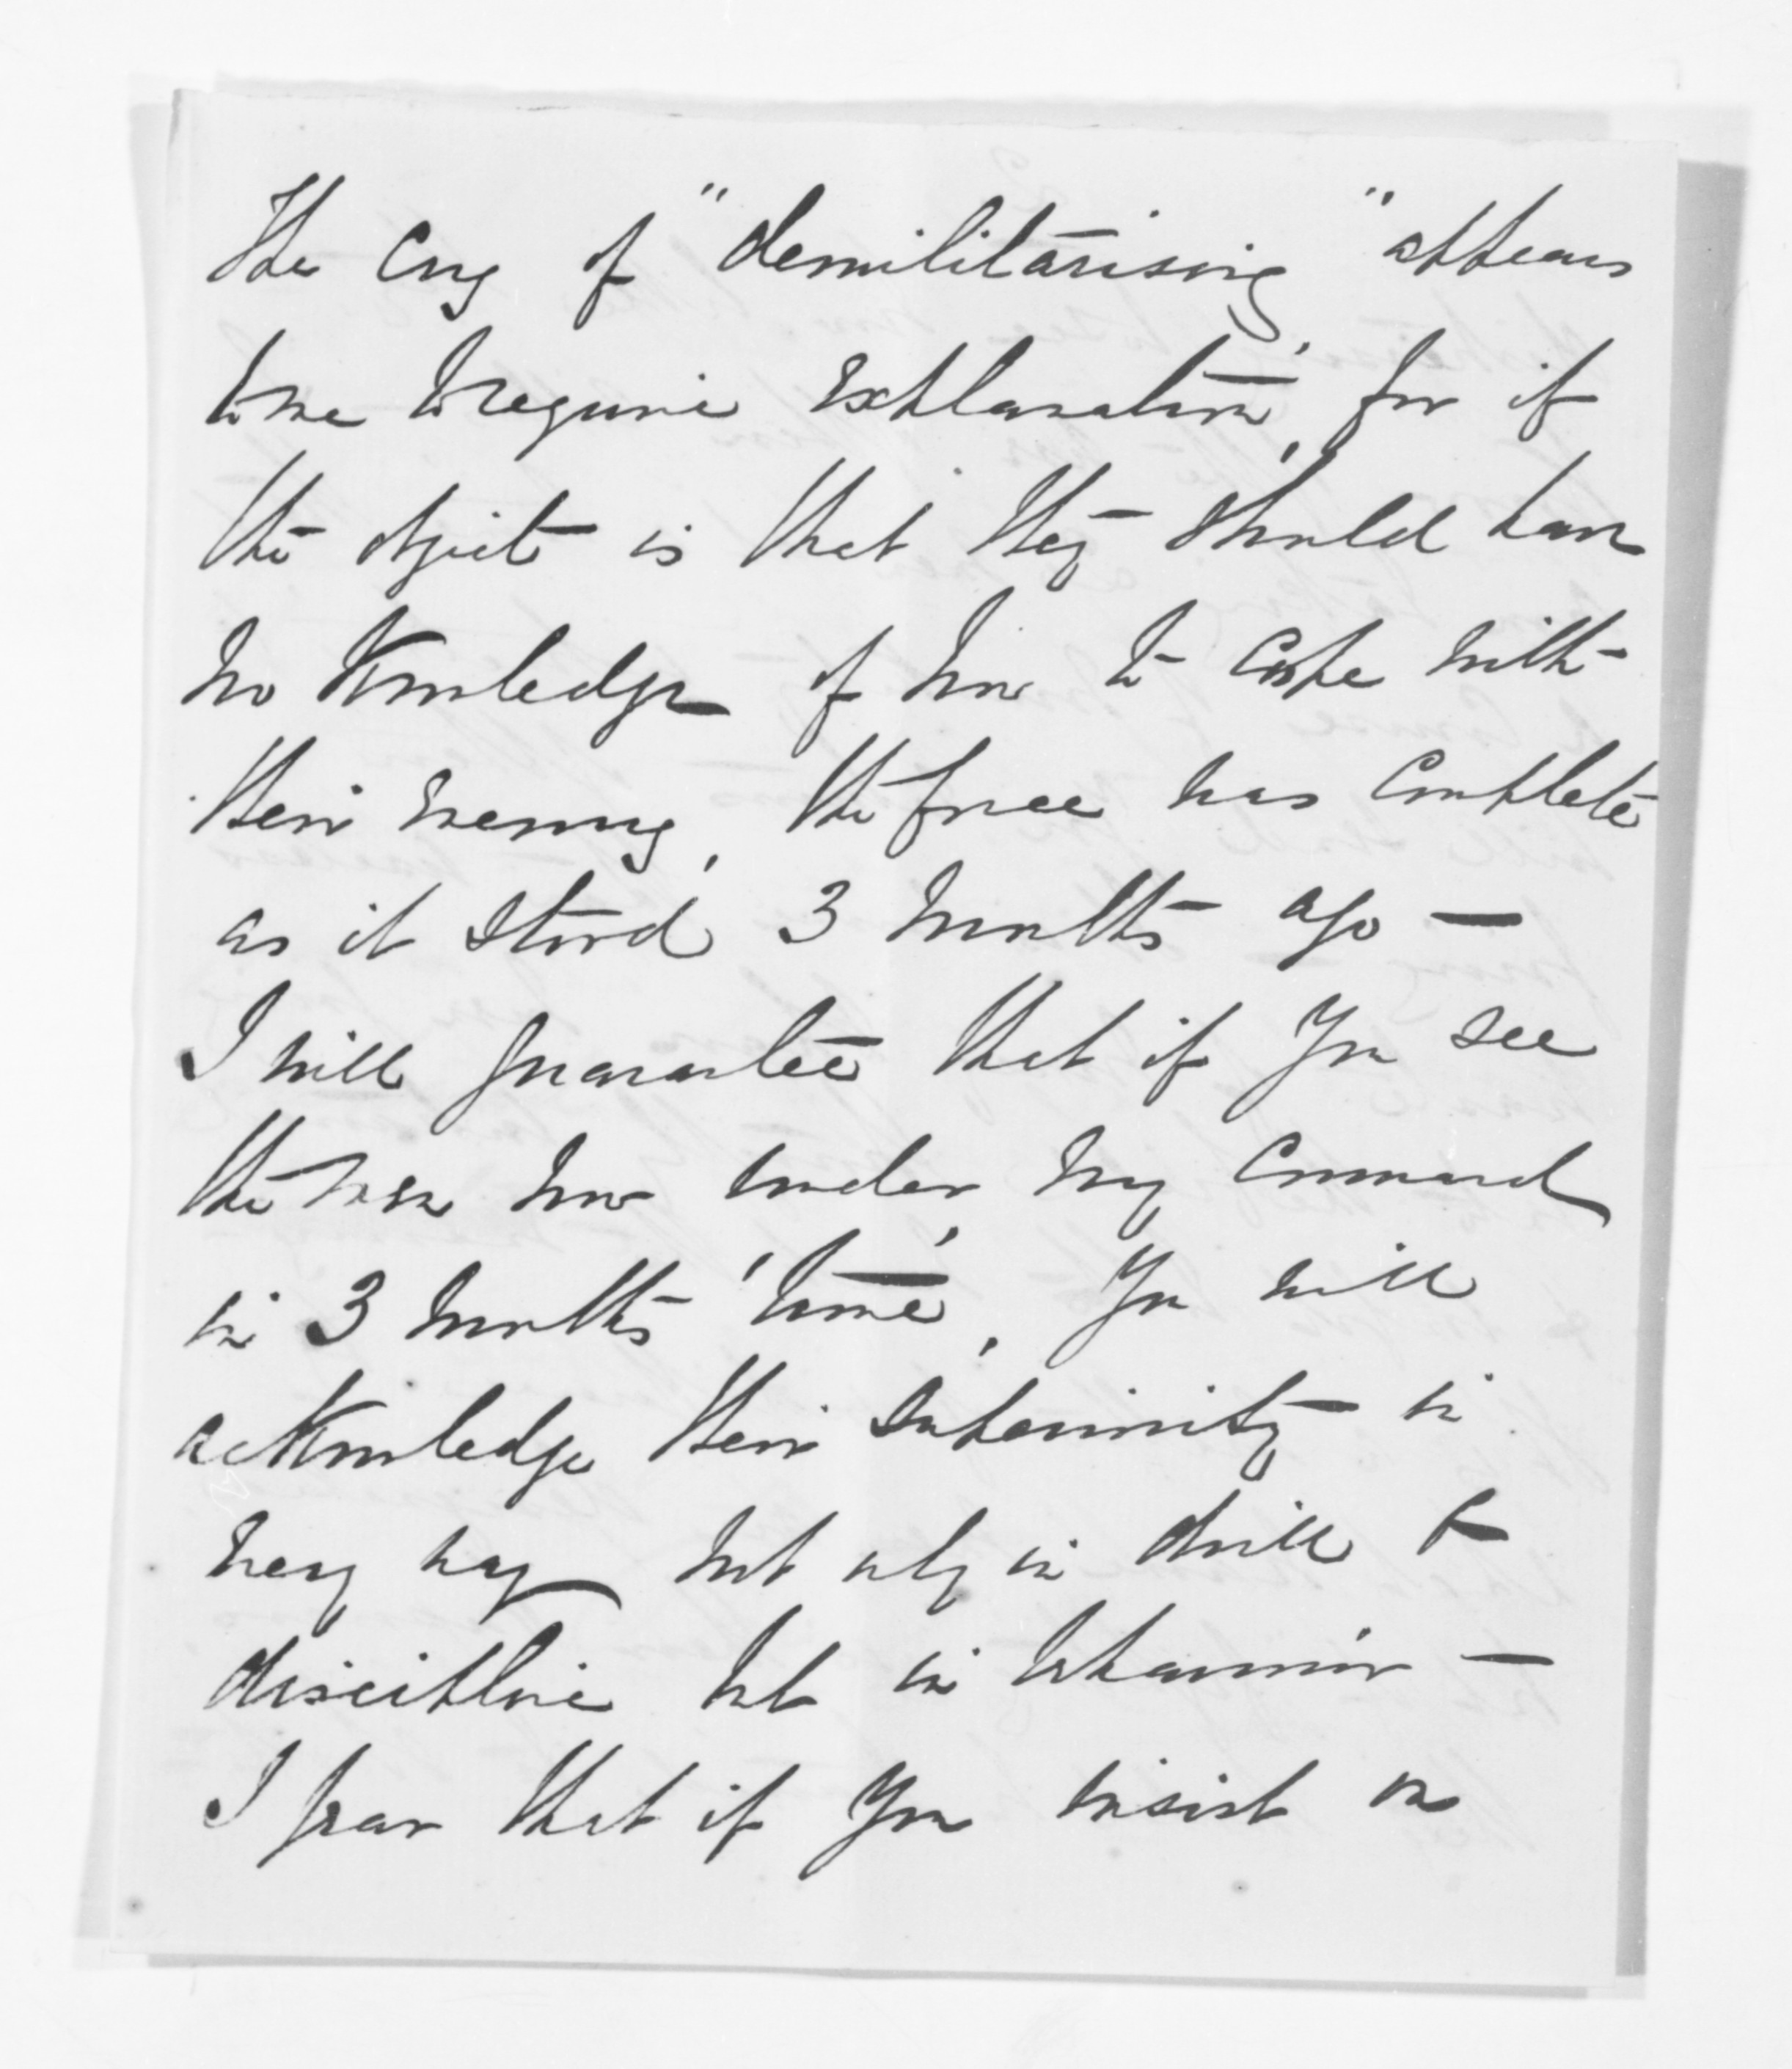 The Cry of "demilitarising" appears
to me to require explanation, for if
the object is that they should have
no knowledge of how to cope with
their enemy, the force was complete
as it stood 3 months ago —
I will guarantee that if you see
the men now under my command,
in 3 months' time, you will
acknowledge their superiority in
every way not only in drill &
discipline but in behaviour —
I fear that if you insist on